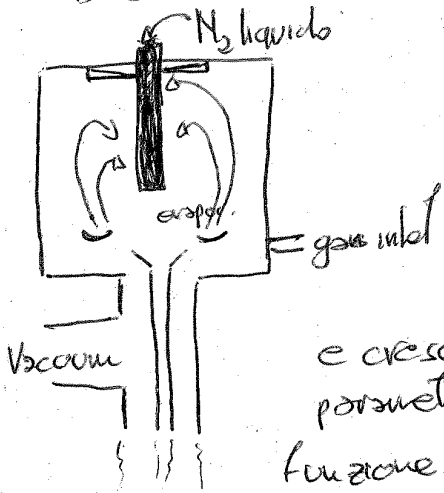 N₂ liquido
evapor.
gas inlet
Vacuum
e cresc
paramet
funzione